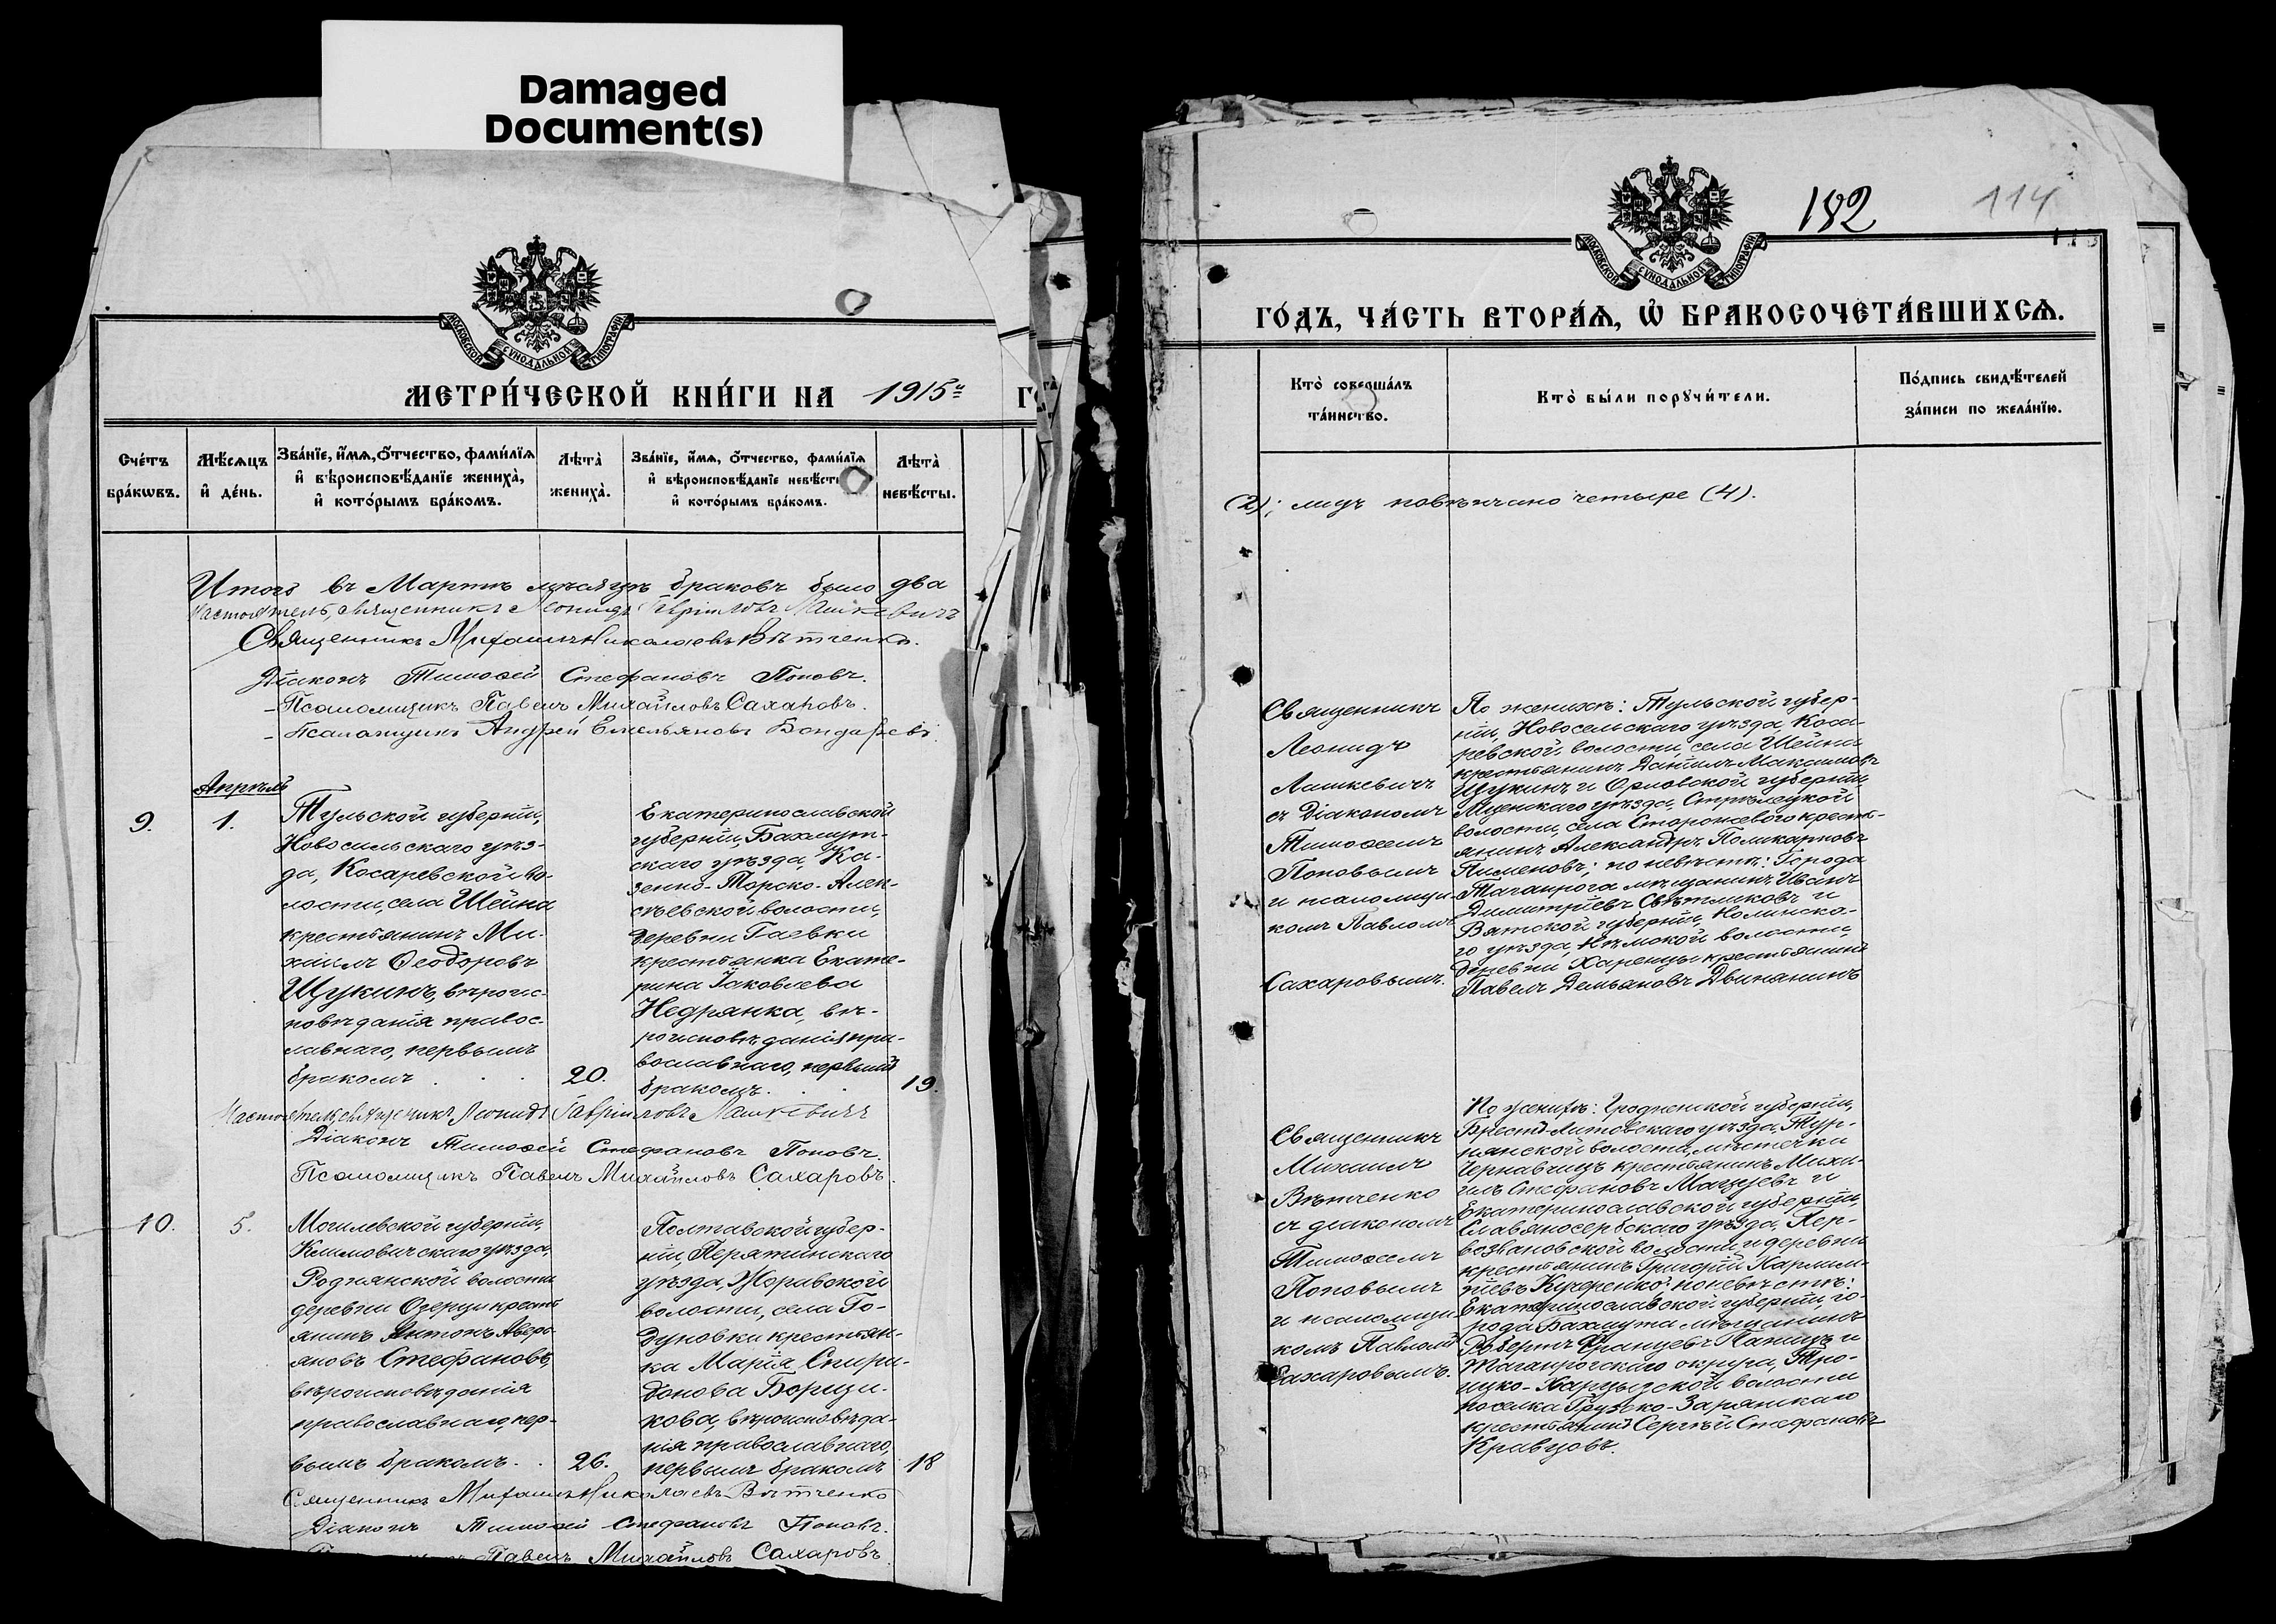 Damaged
Document(s)
МОСКОВСКОЙ СУНОДАЛЬНОЙ ТИПОГРАФІИ
МЕТРИ́ЧЕСКОЙ КНИ́ГИ НА 1915й
Сче́тъ
бра́кѡвъ.
Мѣ́сяцъ
и҆ де́нь.
Зва́нїе, и҆́мѧ, ѻ҆́тчество, фами́лїѧ
и҆ вѣроисповѣ́данїе жениха̀,
и҆ кото́рымъ бра́комъ.
Лѣ́та̀
жениха̀.
Зва́нїе, и҆́мѧ, ѻ҆́тчество, фами́лїѧ
и҆ вѣроисповѣ́данїе невѣ́сты
и҆ кото́рымъ бра́комъ.
Лѣ́та̀
невѣ́сты.
Итого въ Мартѣ мѣсяцѣ браковъ было два
Настоятель, священникъ Леонидъ Гавріиловъ Лашкевичъ
Священникъ Михаилъ Николаевъ Вѣтченко.
Діаконъ Тимоѳей Стефановъ Поповъ.
Псаломщикъ Павелъ Михайловъ Сахаровъ.
Псаломщикъ Андрей Емельяновъ Бондарев
Апрѣль
9.
1.
Тульской губерніи,
Новосильскаго уѣз-
да, Косаревской во-
лости, села Шейна
крестьянинъ Ми-
хаилъ Ѳеодоровъ
Щукинъ, вѣроис-
повѣданія правос-
лавнаго, первымъ
бракомъ . . .
20.
Екатеринославской
губерніи, Бахмут-
скаго уѣзда, Ка-
зенно-Торско-Алек-
сѣевской волости,
деревни Гаевки
крестьянка Екате-
рина Іаковлева
Недрянка, вѣ-
роисповѣданія пра-
вославнаго, первымъ
бракомъ . .
19.
Настоятель, священникъ Леонидъ Гавріиловъ Лашкевичъ
Діаконъ Тимоѳей Стефановъ Поповъ.
Псаломщикъ Павелъ Михайловъ Сахаровъ.
10.
5.
Могилевской губерніи,
Климовичскаго уѣзда,
Роднянской волости
деревни Озерци крестЬ
янинъ Антонъ Аверь-
яновъ Стефановъ,
вѣроисповѣданія
православнаго, пер-
вымъ бракомъ. .
26.
Полтавской губер-
ніи, Пирятинскаго
уѣзда, Жоравской
волости, села Го-
дуновки крестьян-
ка Марія Спири-
донова Борщи-
кова, вѣроисповѣда-
нія православнаго,
первымъ бракомъ
18
Священникъ Михаилъ Николаевъ Вѣтченко
Діаконъ Тимоѳей Стефановъ Поповъ.
Павелъ Михайловъ Сахаровъ
182
114
МОСКОВСКОЙ СУНОДАЛЬНОЙ ТИПОГРАФІИ
ГО́ДЪ, ЧА́СТЬ ВТОРА́Ѧ, Ѡ҆ БРАКОСОЧЕТА́ВШИХСѦ.
Кто̀ соверша́лъ
та́инство.
Кто̀ бы́ли порꙋчи́тели.
По́дпись свидѣ́телей
за́писи по жела́нїю.
(2); лицъ повѣнчано четыре (4).
Священникъ
Леонидъ
Лашкевичъ
съ Діакономъ
Тимоѳеемъ
Поповымъ
и псаломщи-
комъ Павломъ
Сахаровымъ.
По женихѣ: Тульской губер-
ніи, Новосельскаго уѣзда, Коса-
ревской волости, села Шейна
крестьянинъ Даніилъ Максимовъ
Щукинъ и Орловской губерніи,
Мценскаго уѣзда, Стрѣлецкой
волости, села Сторожеваго кресть-
янинъ Александръ Поликарповъ
Пименовъ; по невѣстѣ: Города
Таганрога мѣщанинъ Иванъ
Димитріевъ Свѣтликовъ и
Вятской губерніи, Нолинска-
го уѣзда, Нѣмской волости,
деревни Харенцы крестьянинъ
Павелъ Демьяновъ Двинянинъ
Священникъ
Михаилъ
Вѣтченко
съ діакономъ
Тимоѳеемъ
Поповымъ
и псаломщи-
комъ Павломъ
Сахаровымъ.
По женихѣ: Гродненской губерніи,
Брестъ-Литовскаго уѣзда, Тур-
нянской волости, мѣстечки
Чернавчицъ крестьянинъ Миха-
илъ Стефановъ Мацуевъ и
Екатеринославской губерніи,
Славяносербскаго уѣзда, Пер-
возвановской волости и деревни
крестьянинъ Григорій
Кучеренко; по невѣстѣ:
Екатеринославской губерніи, го-
рода Бахмута мѣщанинъ
Робертъ Францевъ и
Таганрогскаго округа, Тро-
ицко-Харцызской волости
поселка Грузско-Зарянскаго
крестьянинъ Сергѣй Стефановъ
Кравцовъ.